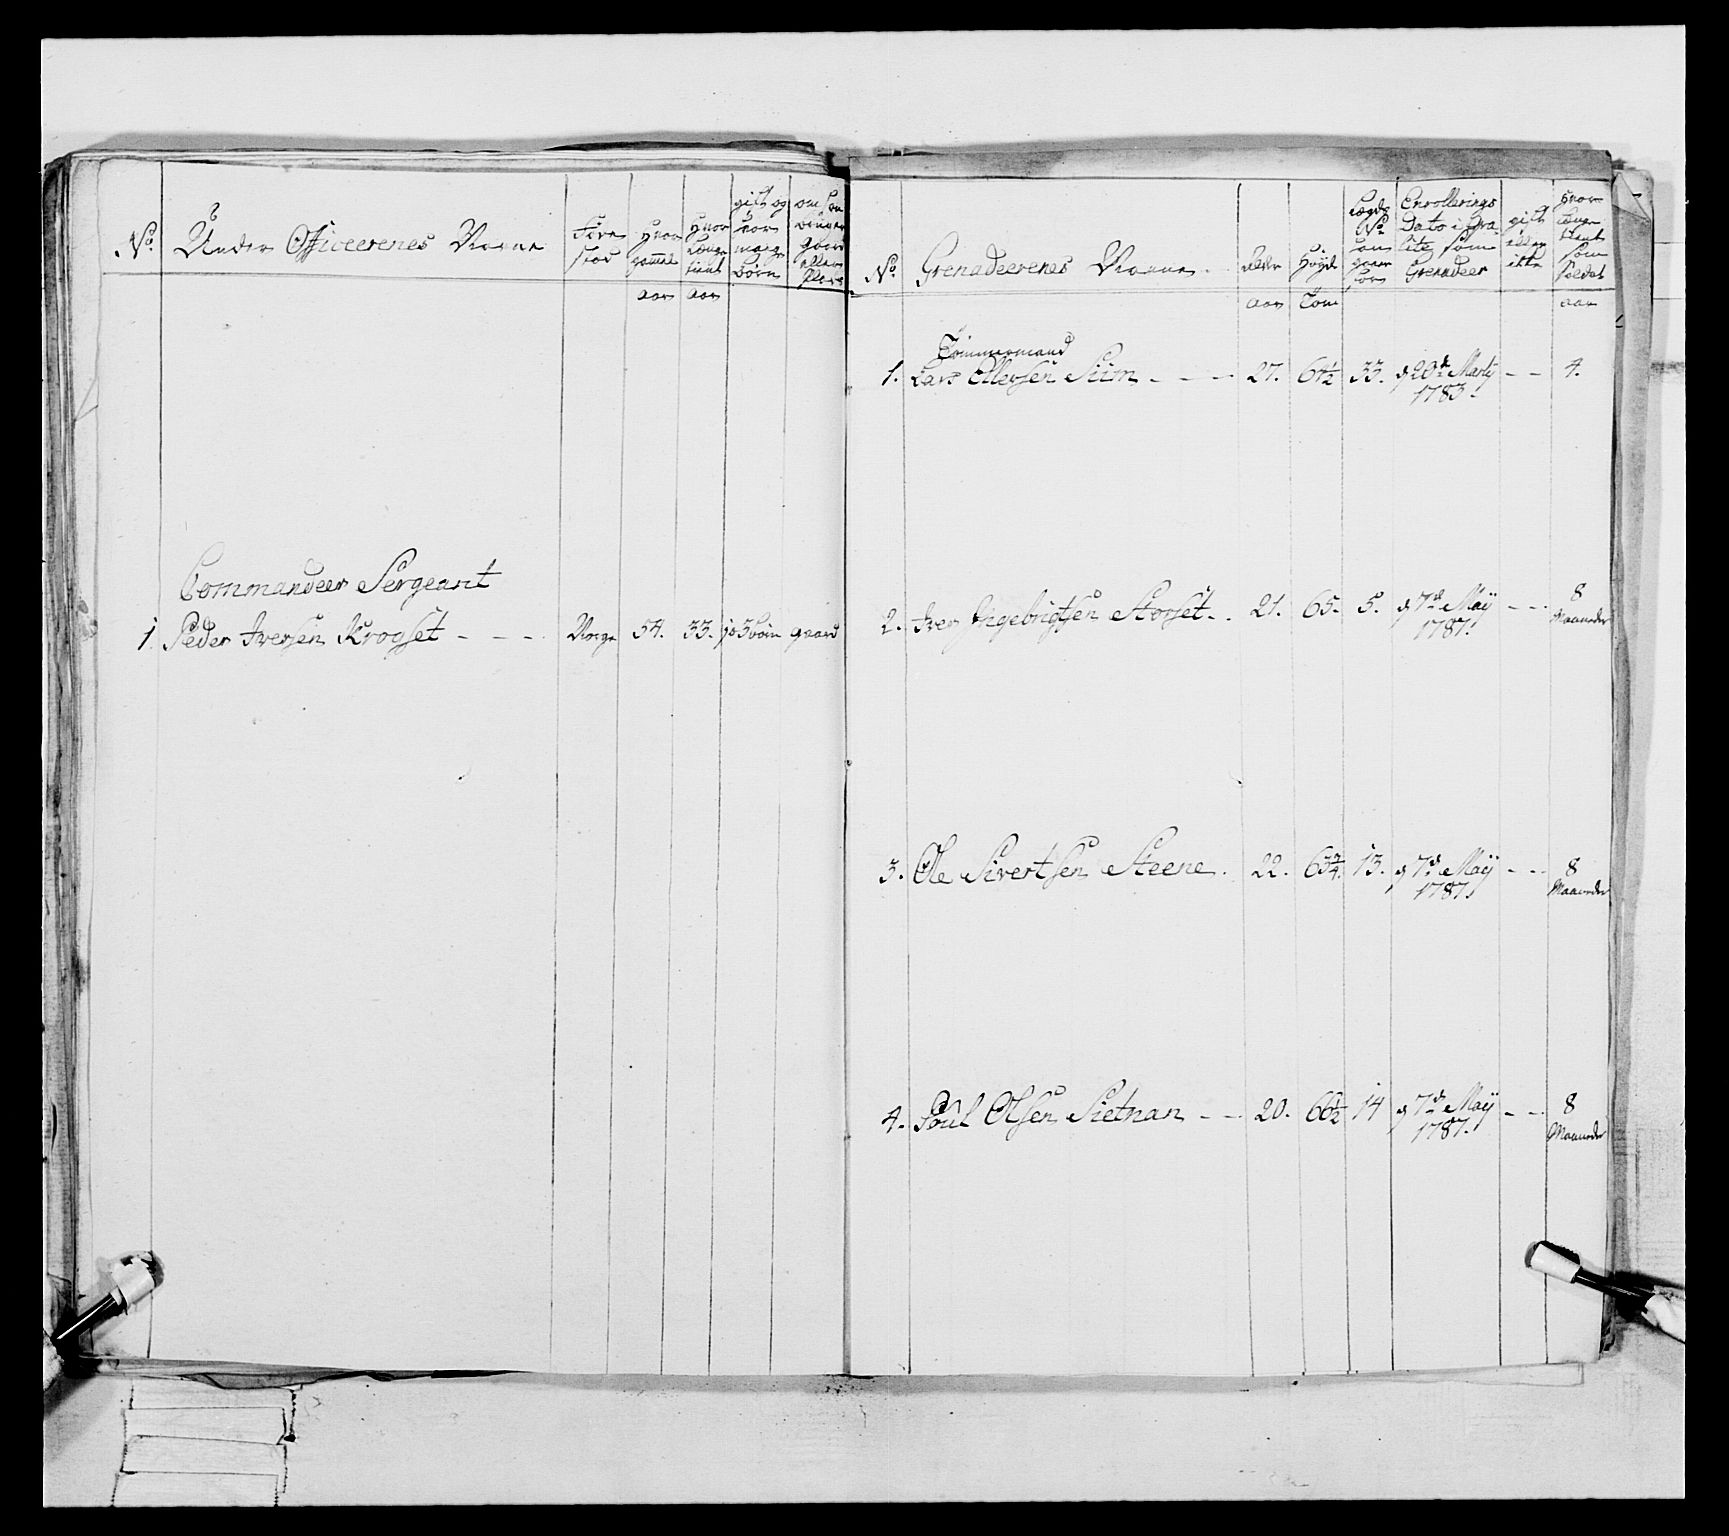 No. Under Officeerenes Navne
Føde
stad
Hvor
gammel
Hvor
længe
tient
gift og
hvor
mange
børn
aar aar
Commandeer Sergeant
1. Peder Iversen Krogset - - - Norge 54. 33. ja 3 børn gaard
No. Grenadeerenes Navne.
Alder
Høyde
Lægds
No.
han
staaer
for
Enrollerings
Dato i qva-
litz som
Grenadeer
gift
eller
ikke
Hvor
længe
tient
som
Soldat
aar Tom aar
Tømmermand
1. Lars Ellefsen Siim - - - 27. 64½ 33. d 20de Martz - - 4.
1783.
2. Iver Ingebrigtsen Storset - . 21. 65. 5. d 7de May - - - 8
1787. Maaneder
3. Ole Sivertsen Steene. 22. 63¾. 13. d 7de May - - - 8
1787. Maaneder
4. Poul Olsen Sletnan - - 20. 66½ 14 d 7de May - - 8
1787. Maaneder